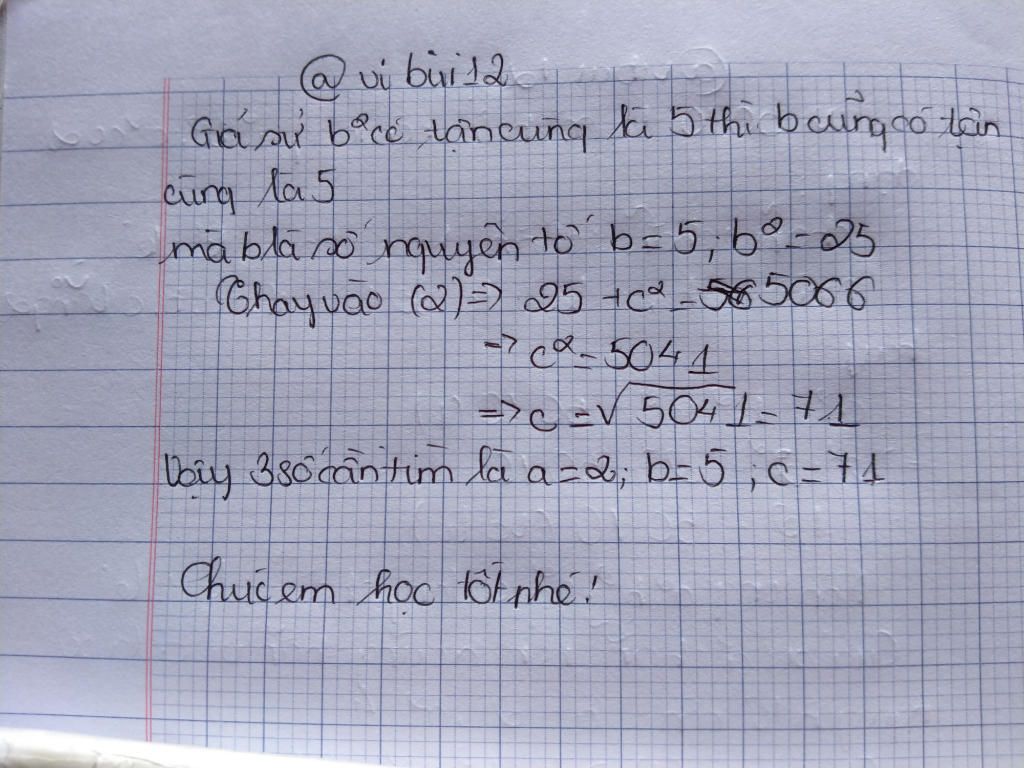 @ vi bùi 12
Giả sử b² có tận cùng là 5 thì b cũng có tận
cùng là 5
mà b là số nguyên tố b = 5; b² = 25
Thay vào (2) => 25 + c² = 5066
=> c² = 5041
=> c = √5041 = 71
Vậy 3 số cần tìm là a = 2; b = 5; c = 71
Chúc em học tốt nhé!